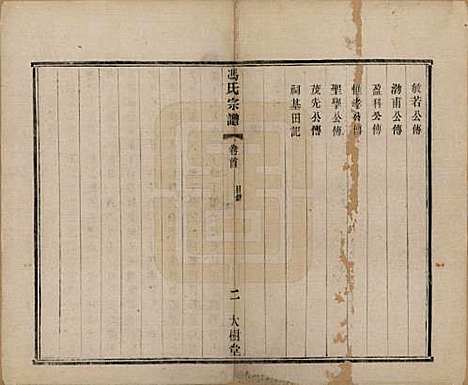 敏若公傳
渤甫公傳
盈科公傳
惟孝公傳
聖學公傳
茂先公傳
祠基田記
馮氏宗譜
卷首
目錄
二
大樹堂